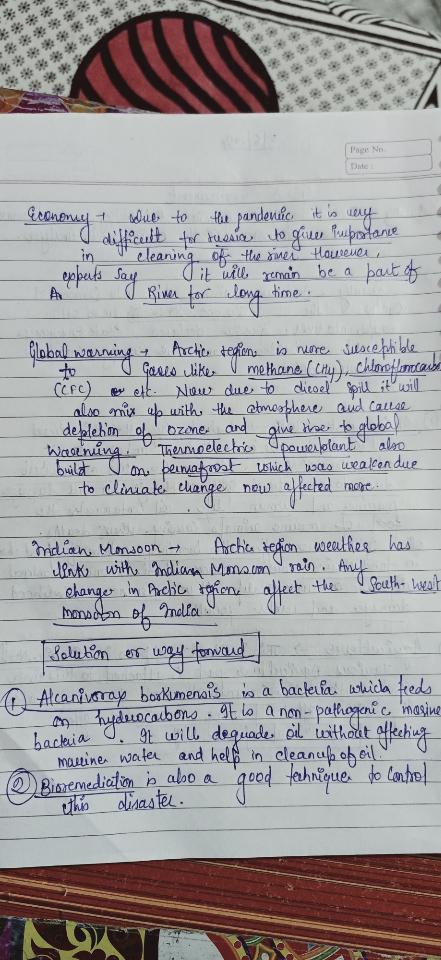 Page No.
Date :
Economy → Due to the pandemic it is very
difficult for russia to give importance
in cleaning of the river However,
experts say it will remain be a part of
A River for long time.
Global warming → Arctic region is more susceptible
to Gases like methane (CH4), Chlorofluorocarbo
(CFC) etc. Now due to diesel spill it will
also mix up with the atmosphere and cause
depletion of ozone and give rise to global
warming. Thermoelectric powerplant also
built on permafrost which was weaken due
to climate change now affected more.
Indian Monsoon → Arctic region weather has
link with Indian Monsoon rain. Any
change in Arctic region affect the South-west
monsoon of India.
Solution or way forward
① Alcanivorax borkumensis is a bacteria which feeds
on hydrocarbons. It is a non-pathogenic marine
bacteria. It will degrade oil without affecting
marine water and help in cleanup of oil.
② Bioremediation is also a good technique to control
this disaster.